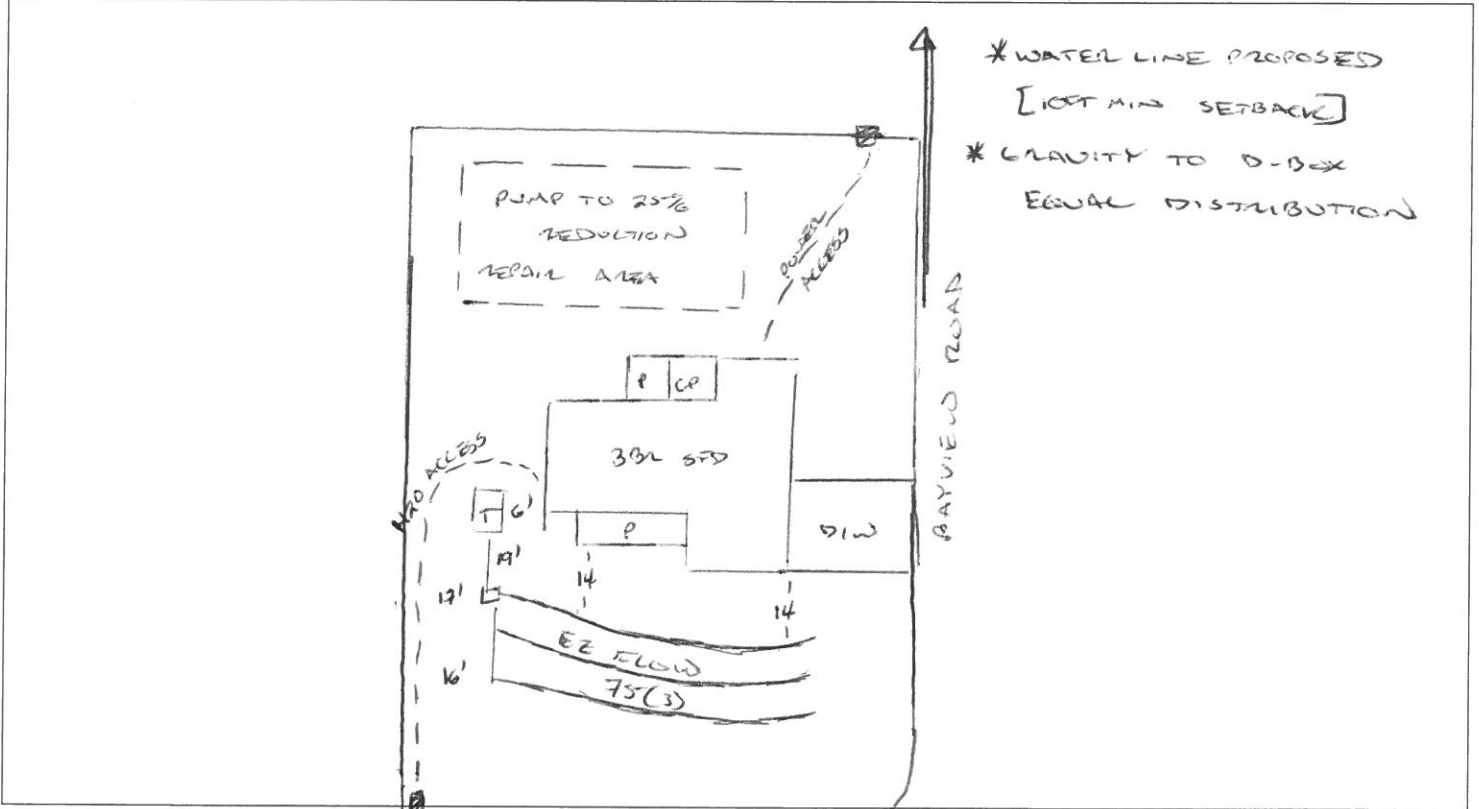 * WATER LINE PROPOSED
[10FT MIN SETBACK]
* GRAVITY TO D-BOX
EQUAL DISTRIBUTION
PUMP TO 25%
REDUCTION
REPAIR AREA
POWER
ACCESS
BAYVIEW ROAD
P
CP
3BR SFD
H2O ACCESS
T
6'
P
D/W
19'
14
17'
14
EZ FLOW
16'
75(3)